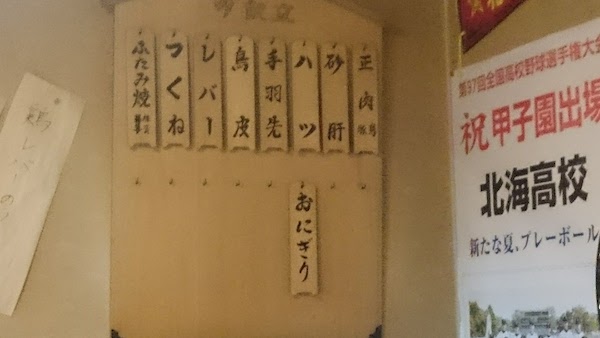 御献立
正肉
砂肝
ハツ
手羽先
鳥皮
レバー
つくね
ふたみ焼
おにぎり
鶏レバーの
第97回全国高校野球選手権大会
祝 甲子園出場
北海高校
新たな夏、プレーボール